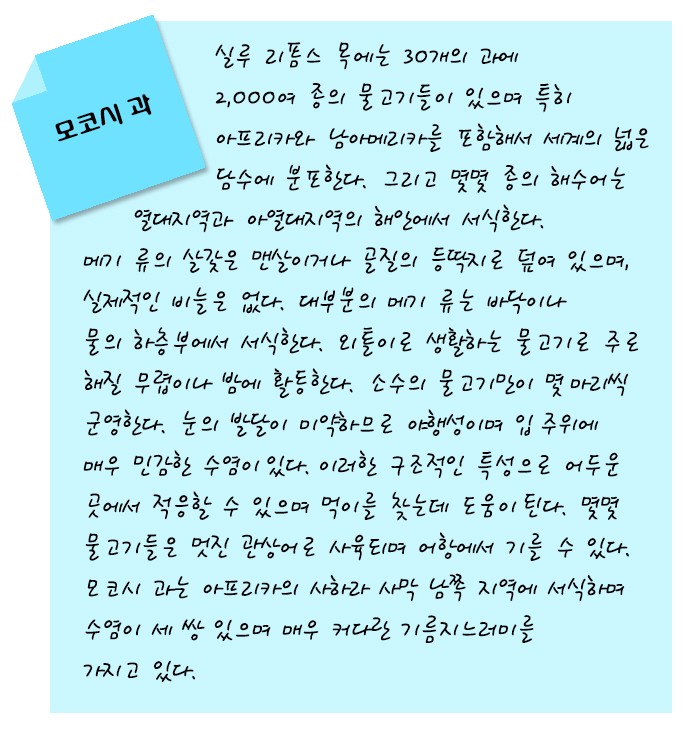 모코시 과
실루 리폼스 목에는 30개의 과에
2,000여 종의 물고기들이 있으며 특히
아프리카와 남아메리카를 포함해서 세계의 넓은
담수에 분포한다. 그리고 몇몇 종의 해수어는
열대지역과 아열대지역의 해안에서 서식한다.
메기 류의 살갗은 맨살이거나 골질의 등딱지로 덮여 있으며,
실제적인 비늘은 없다. 대부분의 메기 류는 바닥이나
물의 하층부에서 서식한다. 외톨이로 생활하는 물고기로 주로
해질 무렵이나 밤에 활동한다. 소수의 물고기만이 몇 마리씩
군영한다. 눈의 발달이 미약하므로 야행성이며 입 주위에
매우 민감한 수염이 있다. 이러한 구조적인 특성으로 어두운
곳에서 적응할 수 있으며 먹이를 찾는데 도움이 된다. 몇몇
물고기들은 멋진 관상어로 사육되며 어항에서 기를 수 있다.
모코시 과는 아프리카의 사하라 사막 남쪽 지역에 서식하며
수염이 세 쌍 있으며 매우 커다란 기름지느러미를
가지고 있다.